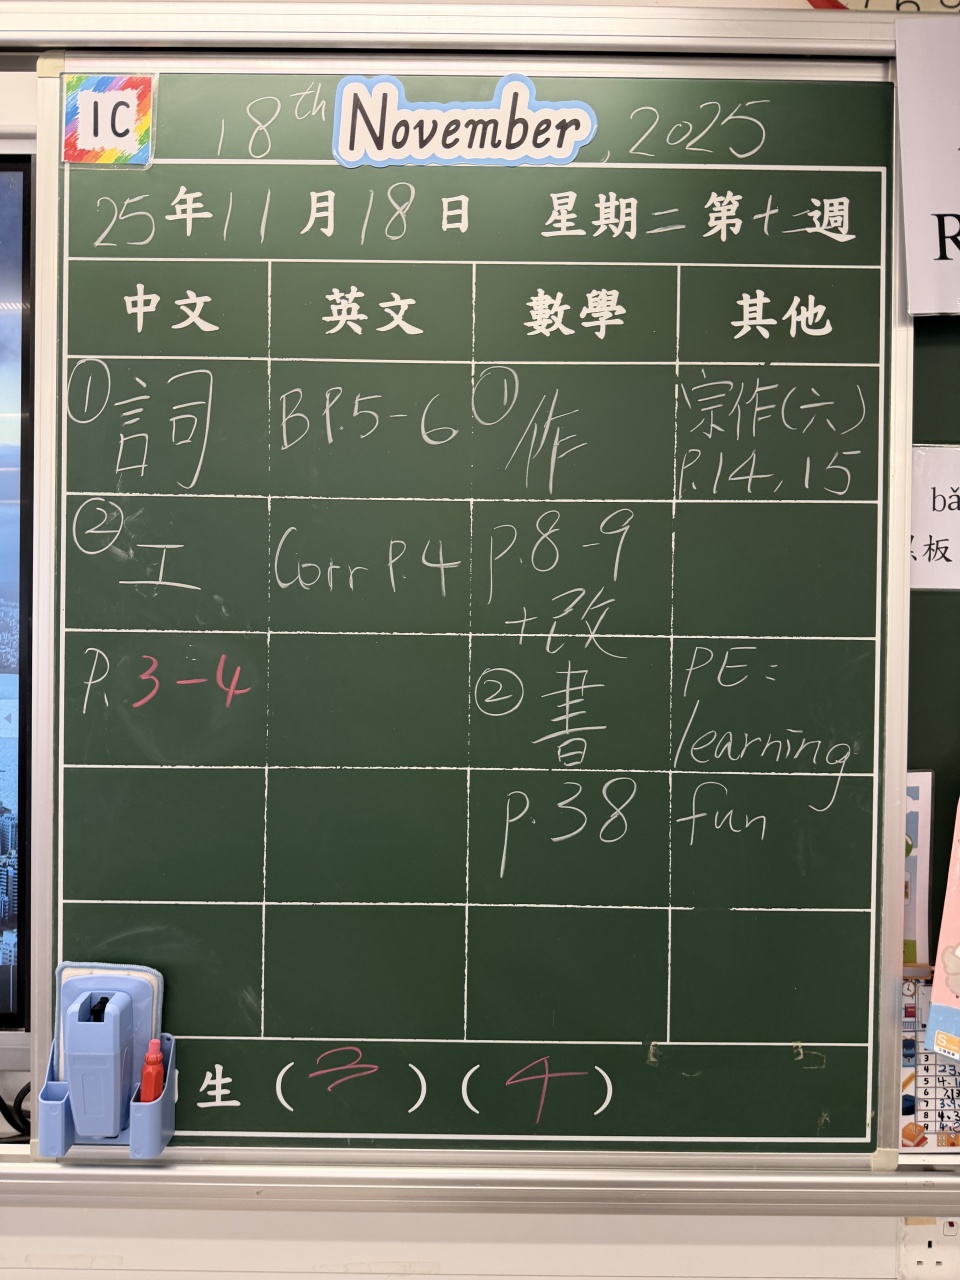 1C
18th November, 2025
25年11月18日 星期二 第十二週
中文 英文 數學 其他
① 詞
BP.5-6
① 作
宗作(六)
P.14, 15
② 工
Corr P.4
p.8-9
+改
P. 3-4
② 書
PE:
learning
p.38
fun
生 ( 3 ) ( 4 )
R
bǎ
板